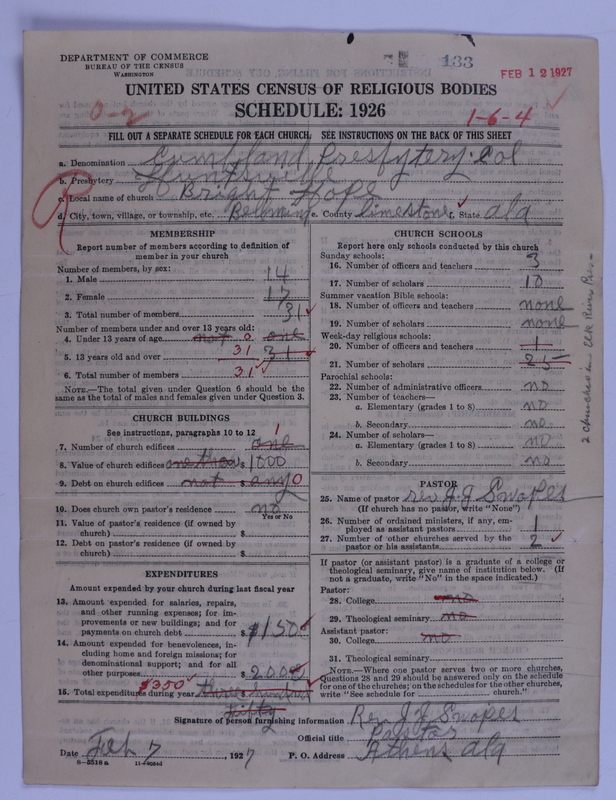 DEPARTMENT OF COMMERCE
BUREAU OF THE CENSUS
WASHINGTON
133
FEB 12 1927
UNITED STATES CENSUS OF RELIGIOUS BODIES
SCHEDULE: 1926
0-2
1-6-4
FILL OUT A SEPARATE SCHEDULE FOR EACH CHURCH. SEE INSTRUCTIONS ON THE BACK OF THIS SHEET
a. Denomination Cumberland Presbytery. Col
b. Presbytery Huntsville
c. Local name of church Bright Hope
d. City, town, village, or township, etc. e. County limestone f. State ala
R
MEMBERSHIP
Report number of members according to definition of
member in your church
Number of members, by sex:
1. Male 14
2. Female 17
3. Total number of members 31
Number of members under and over 13 years old:
4. Under 13 years of age not 0 one
5. 13 years old and over 31 31
6. Total number of members 31
NOTE.—The total given under Question 6 should be the
same as the total of males and females given under Question 3.
CHURCH BUILDINGS
See instructions, paragraphs 10 to 12
7. Number of church edifices one 1
8. Value of church edifices one thou $ 1000
9. Debt on church edifices not $ any 0
10. Does church own pastor's residence no
Yes or No
11. Value of pastor's residence (if owned by
church) $
12. Debt on pastor's residence (if owned by
church) $
EXPENDITURES
Amount expended by your church during last fiscal year
13. Amount expended for salaries, repairs,
and other running expenses; for im-
provements or new buildings; and for
payments on church debt $ 150
14. Amount expended for benevolences, in-
cluding home and foreign missions; for
denominational support; and for all
other purposes $ 2000
15. Total expenditures during year $350 three hundred
fifty
CHURCH SCHOOLS
Report here only schools conducted by this church
Sunday schools:
16. Number of officers and teachers 3
17. Number of scholars 10
Summer vacation Bible schools:
18. Number of officers and teachers none
19. Number of scholars none
Week-day religious schools:
20. Number of officers and teachers 1
21. Number of scholars 25
Parochial schools:
22. Number of administrative officers no
23. Number of teachers—
a. Elementary (grades 1 to 8) no
b. Secondary no
24. Number of scholars—
a. Elementary (grades 1 to 8) no
b. Secondary no
PASTOR
25. Name of pastor rev. J. J. Swopes
(If church has no pastor, write "None")
26. Number of ordained ministers, if any, em-
ployed as assistant pastors 1
27. Number of other churches served by the
pastor or his assistants 2
If pastor (or assistant pastor) is a graduate of a college or
theological seminary, give name of institution below. (If
not a graduate, write "No" in the space indicated.)
Pastor:
28. College no
29. Theological seminary no
Assistant pastor:
30. College no
31. Theological seminary
NOTE.—Where one pastor serves two or more churches,
Questions 28 and 29 should be answered only on the schedule
for one of the churches; on the schedules for the other churches,
write "See schedule for church."
Signature of person furnishing information Rev. J. J. Swopes
Official title Pastor
Date Feb 7, 1927 P. O. Address Athens ala
8—5518 a
2 Churches in Elk River Pres.